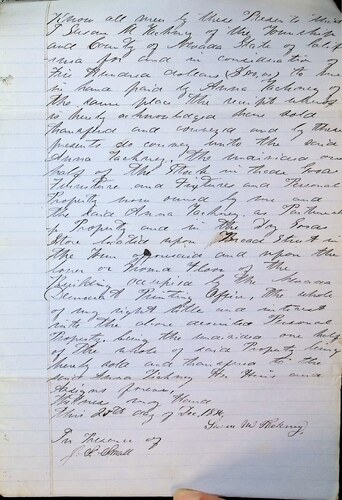 Know all men by these Presents that
I Susan M. Hickney of the Township
and County of Nevada State of Cali
for and in consideration of
Five Hundred dollars to me
in hand paid by Anna Hickney of
the same place the receipt whereof
is hereby acknowledged have sold
transfered and conveyed and by these
presents do convey unto the said
Anna Hickney, the undivided one
half of the Stock in trade Goods
Furniture and Fixtures and Personal
Property now owned by me and
the said Anna Hickney as Partnership
Property and in the Dry Goods
Store located upon Broad Street in
the Town aforesaid and upon the
lower or Floor of the
Building occupied by the Nevada
Printing Office, the whole
of my right title and interest
into the above described Personal
Property, being the undivided one half
of the whole of said Property being
hereby sold and transfered to the
said Anna Hickney Her Heirs and
Assigns forever
Witness my Hand
This 20th day of Dec
Susan M. Hickney
In Presence of